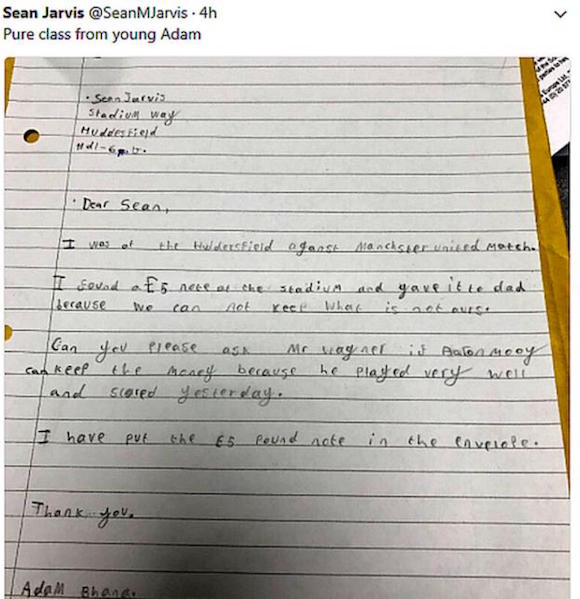 Sean Jarvis @SeanMJarvis · 4h
Pure class from young Adam
· Sean Jarvis
Stadium way
Huddesfield
Hd1-6
· Dear Sean,
I was at the Huldersfield aganst Manchster united match.
I found a £5 note at the stadium and gave it to dad
because we can not keep what is not ours.
Can you please ask Mr wagner if Aaton mooy
can keep the money because he played very well
and scored yesterday.
I have put the £5 pound note in the envelope.
Thank you.
Adam Bhana.